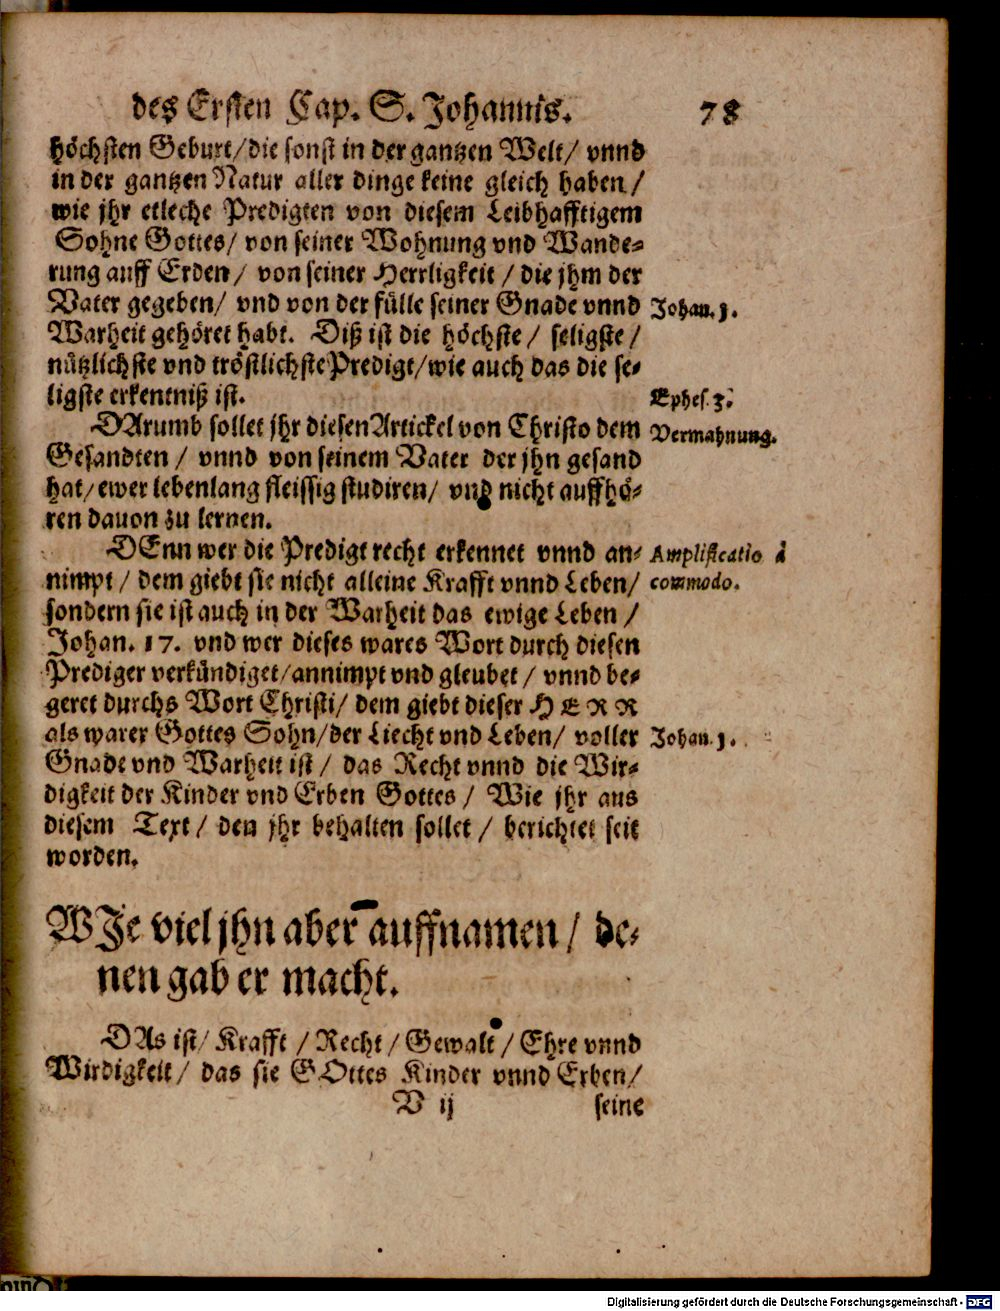 des Ersten Cap. S. Johannis. 78
höchsten Geburt/die sonst in der gantzen Welt/ vnnd
in der gantzen Natur aller dinge keine gleich haben/
wie jhr etleche Predigten von diesem Leibhafftigem
Sohne Gottes/ von seiner Wohnung vnd Wande-
rung auff Erden/ von seiner Herrligkeit / die jhm der
Vater gegeben/ vnd von der fülle seiner Gnade vnnd
Johan. 1.
Warheit gehöret habt. Diß ist die höchste/ seligste/
nützlichste vnd tröstlichste Predigt/wie auch das die se-
ligste erkentniß ist.
Ephes. 3.
DArumb sollet jhr diesen Artickel von Christo dem
Vermahnung.
Gesandten / vnnd von seinem Vater der jhn gesand
hat/ewer lebenlang fleissig studiren/ vnd nicht auffhö-
ren dauon zu lernen.
DEnn wer die Predigt recht erkennet vnnd an-
Amplificatio à
nimpt/ dem giebt sie nicht alleine Krafft vnnd Leben/
commodo.
sondern sie ist auch in der Warheit das ewige Leben /
Johan. 17. vnd wer dieses wares Wort durch diesen
Prediger verkündiget/annimpt vnd gleubet / vnnd be-
geret durchs Wort Christi/ dem giebt dieser HERR
als warer Gottes Sohn/der Liecht vnd Leben/ voller
Johan. 1.
Gnade vnd Warheit ist / das Recht vnnd die Wir-
digkeit der Kinder vnd Erben Gottes / Wie jhr aus
diesem Text/ den jhr behalten sollet / berichtet seit
worden.
WJe viel jhn aber auffnamen / de-
nen gab er macht.
DAs ist/ Krafft / Recht / Gewalt / Ehre vnnd
Wirdigkeit/ das sie GOttes Kinder vnnd Erben/
V ij seine
Digitalisierung gefördert durch die Deutsche Forschungsgemeinschaft - DFG